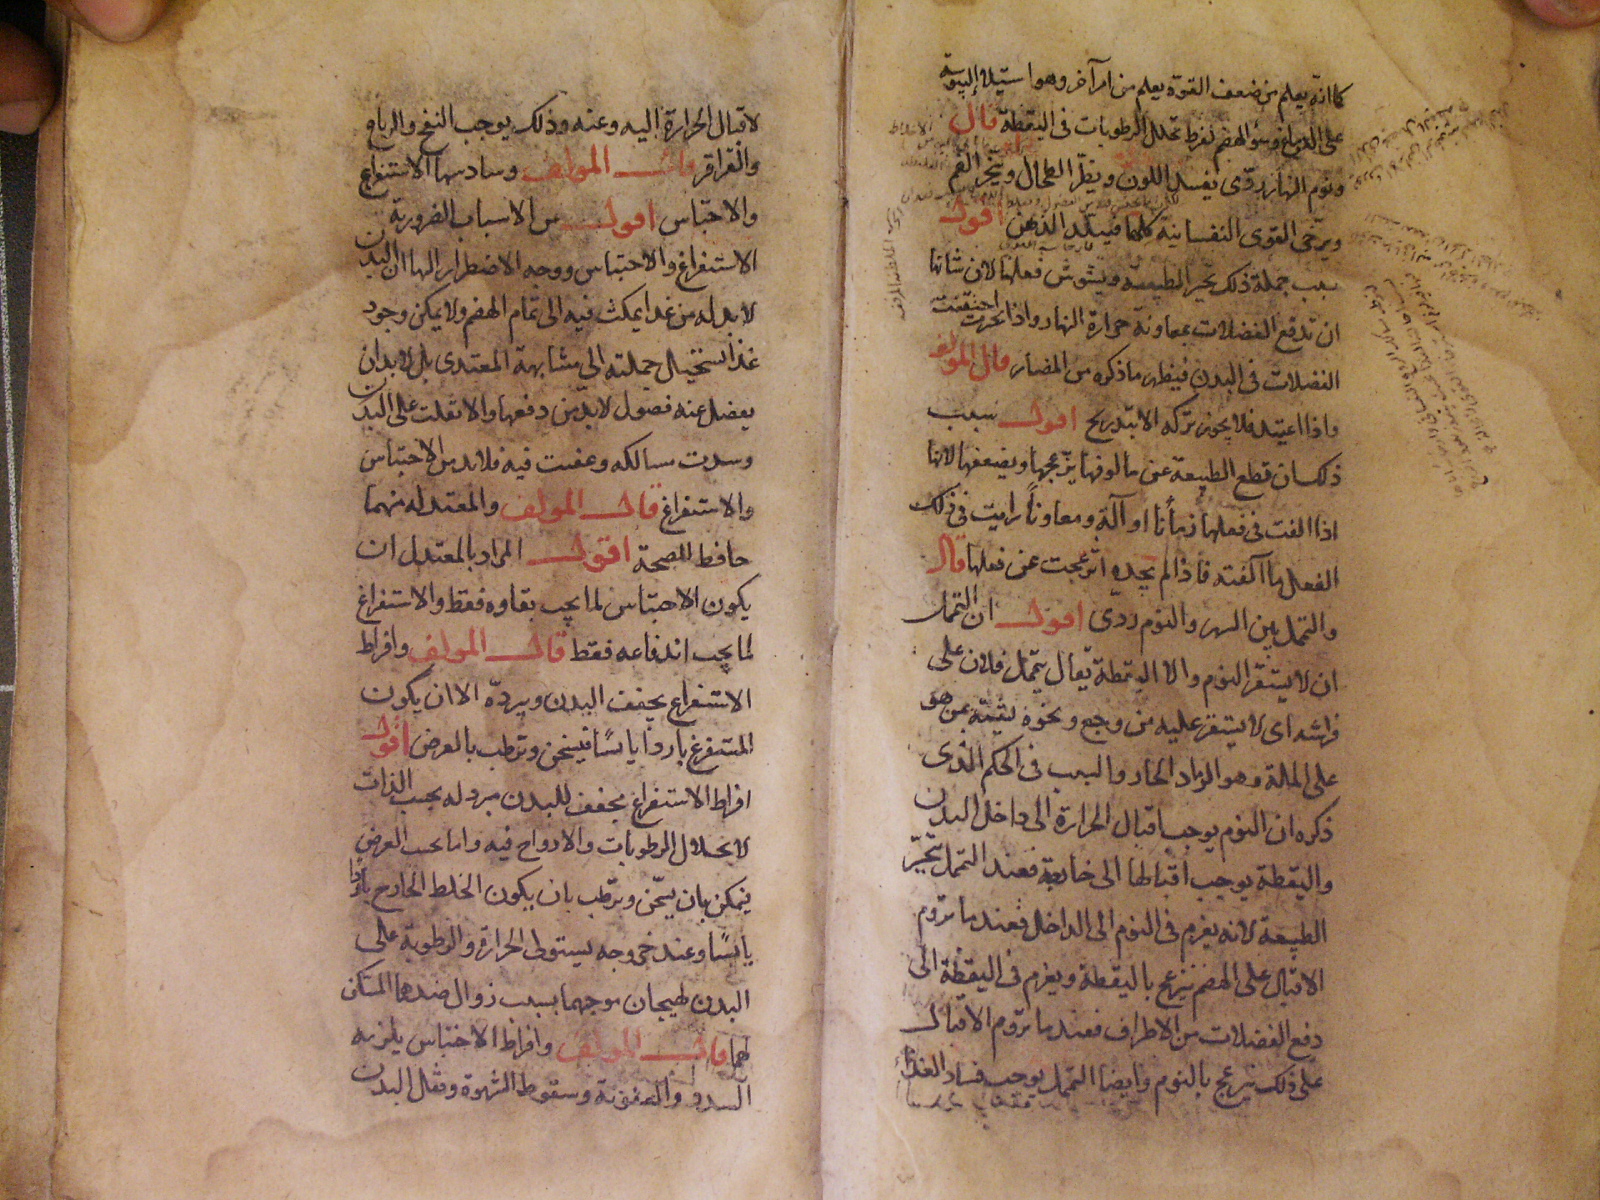 كما انه يعلم من ضعف القوة يعلم من امر آخر وهو استيلا اليبوسة
على الدماغ وسؤ الهضم لفرط تحلل الرطوبات فى اليقظة قال
ونوم النهار ردى يفسد اللون ويضر الطحال ويبخر الفم
ويرخى القوى النفسانية كلها فيبلد الذهن اقول
سبب جملة ذلك تحير الطبيعة ويشوش فعلها لان شانها
ان تدفع الفضلات بمعاونة حرارة النهار واذا تحيرت احتقنت
الفضلات فى البدن فيظهر ما ذكره من المضار قال المولف
واذا اعتيد فلا يجوز تركه الا بتدريج اقول سبب
ذلك ان قطع الطبيعة عن مالوفها يزعجها ويضعفها لانها
اذا الفت فى فعلها زمانا او آلة ومعاونا رامت فى ذلك
الفعل ما الفته فاذا لم تجده انزعجت عن فعلها قال
والتململ بين السهر والنوم ردى اقول ان التململ
ان لا يستقر النوم ولا اليقظة يقال يتململ فلان على
فراشه اى لا يستقر عليه من وجع ونحوه تشبيه بمن هو
على الملة وهو الرماد الحار والسبب فى الحكم الذى
ذكره ان النوم يوجب اقبال الحرارة الى داخل البدن
واليقظة يوجب اقبالها الى خارجه فعند التململ تتحير
الطبيعة لانه يعزم فى النوم الى الداخل فعند ما تروم
الاقبال على الهضم ينزعج باليقظة ويعزم فى اليقظة الى
دفع الفضلات من الاطراف فعند ما تروم الاقبال
على ذلك ينزعج بالنوم وايضا التململ يوجب فساد الغذا
لاقبال الحرارة اليه وعنه وذلك يوجب النفخ والرياح
والقراقر قال المولف وسادسها الاستفراغ
والاحتباس اقول من الاسباب الضرورية
الاستفراغ والاحتباس ووجه الاضطرار الها ان البدن
لا بد له من غذا يمكث فيه الى تمام الهضم ولا يمكن وجود
غذا يستحيل جملته الى مشابهة المغتدى بل لا بد ان
يفضل عنه فضول لا بد من دفعها والا ثقلت على البدن
وسدت مسالكه وعفنت فيه فلا بد من الاحتباس
والاستفراغ قال المولف والمعتدل منهما
حافظ للصحة اقول المراد بالمعتدل ان
يكون الاحتباس لما يجب بقاوه فقط والاستفراغ
لما يجب اندفاعه فقط قال المولف وافراط
الاستفراغ يجفف البدن ويبرده الا ان يكون
المستفرغ باردا يابسًا فيسخن وترطب بالعرض اقول
افراط الاستفراغ مجفف للبدن مبرد له بحسب الذات
لانحلال الرطوبات والارواح فيه واما بحسب العرض
فيمكن بان يسخن ويرطب بان يكون الخلط الخارج باردا
يابسًا وعند خروجه يستولى الحرارة والرطوبة على
البدن لهيجان موجبهما بسبب زوال ضدهما المسكن
لهما قال المولف وافراط الاحتباس يلزمه
السدد والعفونة وسقوط الشهوة وثقل البدن